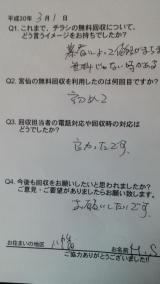 平成30年 3月 1日
Q1. これまで、チラシの無料回収について、
どう言うイメージをお持ちでしたか?
業者によって価格がまちまち
無料じゃない時がある
Q2. 宮仙の無料回収を利用したのは何回目ですか?
初めて
Q3. 回収担当者の電話対応や回収時の対応は
どうでしたか?
良かったです。
Q4. 今後も回収をお願いしたいと思われましたか?
ご意見・ご要望がありましたらお願い致します。
お願いしたいです
お住まいの地区
お名前 H.S
ご協力ありがとうございました!!